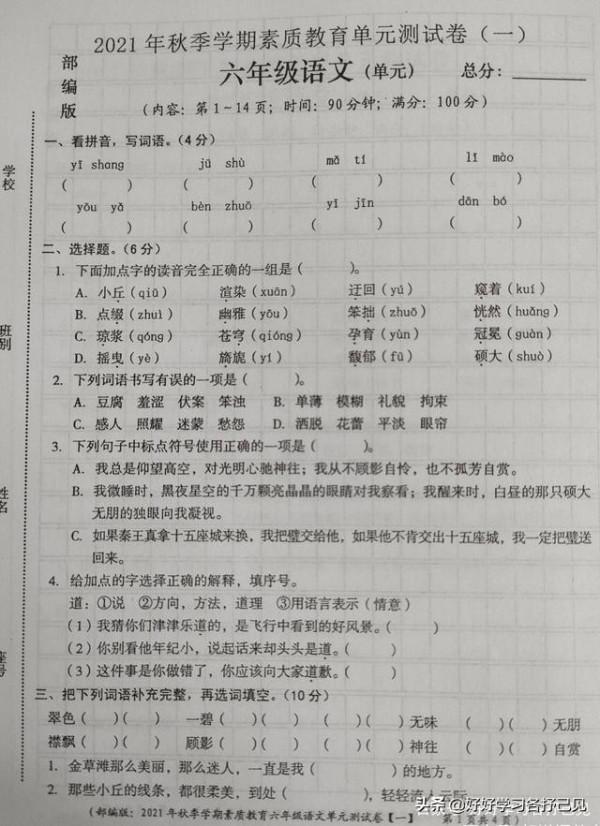 2021年秋季学期素质教育单元测试卷（一）
部编版
六年级语文（单元） 总分：
（内容：第1~14页；时间：90分钟；满分：100分）
学校
班别
姓名
座号
一、看拼音，写词语。（4分）
yī shang jú shù mǎ tí lǐ mào
（ ） （ ） （ ） （ ）
yōu yǎ bèn zhuō yī jīn dān bó
（ ） （ ） （ ） （ ）
二、选择题。（6分）
1. 下面加点字的读音完全正确的一组是（ ）。
A. 小丘（qiū） 渲染（xuān） 迂回（yú） 窥着（kuí）
B. 点缀（zhuì） 幽雅（yōu） 笨拙（zhuō） 恍然（huǎng）
C. 琼浆（qóng） 苍穹（qióng） 孕育（yùn） 冠冕（guàn）
D. 摇曳（yè） 旖旎（yǐ） 馥郁（fū） 硕大（shuò）
2. 下列词语书写有误的一项是（ ）。
A. 豆腐 羞涩 伏案 笨浊 B. 单薄 模糊 礼貌 拘束
C. 感人 照耀 迷蒙 愁怨 D. 洒脱 花蕾 平淡 眼帘
3. 下列句子中标点符号使用正确的一项是（ ）。
A. 我总是仰望高空，对光明心驰神往；我从不顾影自怜，也不孤芳自赏。
B. 我微睡时，黑夜星空的千万颗亮晶晶的眼睛对我察看；我醒来时，白昼的那只硕大
无朋的独眼向我凝视。
C. 如果秦王真拿十五座城来换，我把璧交给他，如果他不肯交出十五座城，我一定把璧送
回来。
4. 给加点的字选择正确的解释，填序号。
道：①说 ②方向，方法，道理 ③用语言表示（情意）
（1）我猜你们津津乐道的，是飞行中看到的好风景。（ ）
（2）你别看他年纪小，说起话来却头头是道。（ ）
（3）这件事是你做错了，你应该向大家道歉。（ ）
三、把下列词语补充完整，再选词填空。（10分）
翠色（ ）（ ） 一碧（ ）（ ） （ ）（ ）无味 （ ）（ ）无朋
襟飘（ ）（ ） 顾影（ ）（ ） （ ）（ ）神往 （ ）（ ）自赏
1. 金草滩那么美丽，那么迷人，一直是我（ ）的地方。
2. 那些小丘的线条，都很柔美，到处（ ），轻轻流入云际。
（部编版：2021年秋季学期素质教育六年级语文单元测试卷【一】 第1页共4页）
头条@好好学习各抒己见